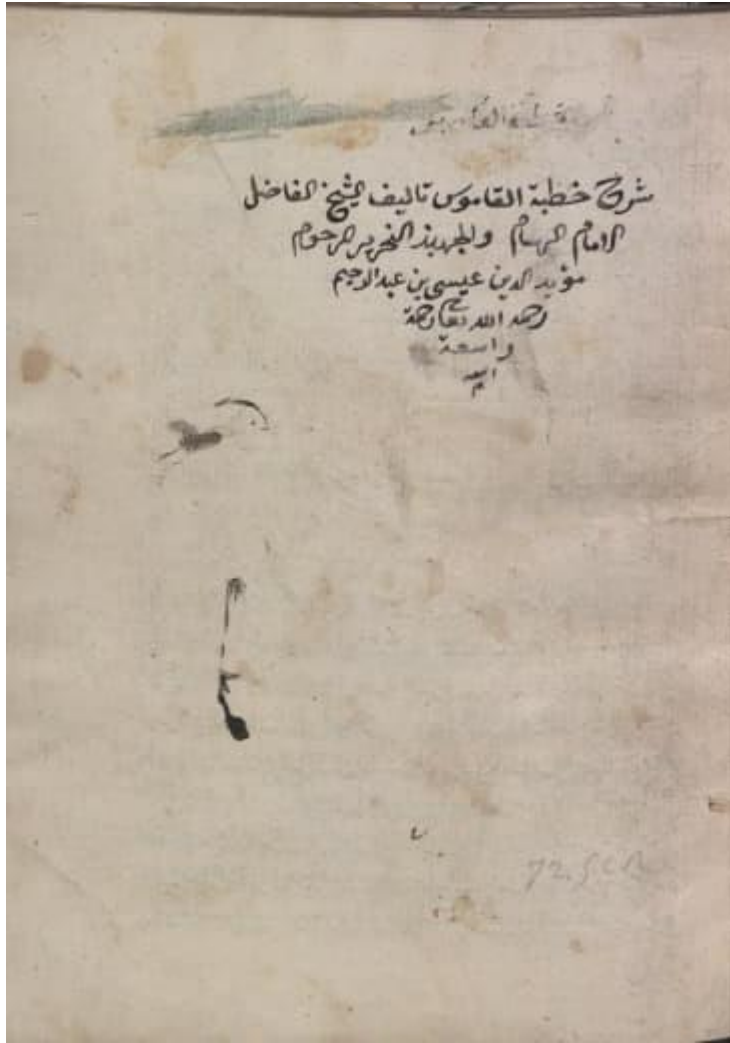 شرح خطبة القاموس تاليف الشيخ الفاضل
الامام الهمام والجهبذ النحرير المرحوم
مؤيد الدين عيسى بن عبد الرحيم
رحمه الله تعالى رحمة
واسعة